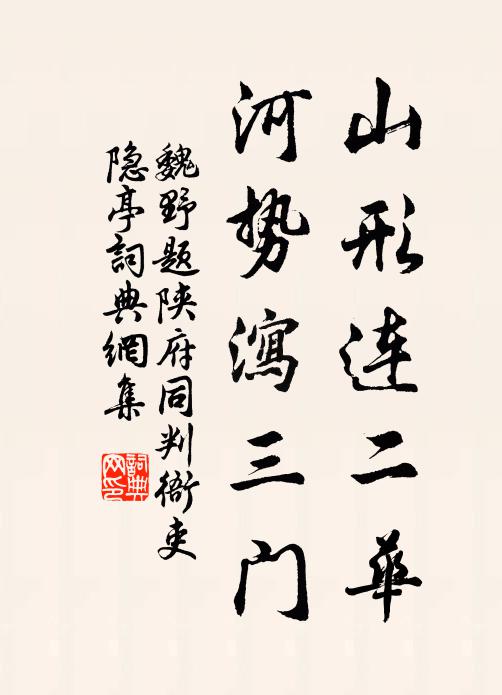 山形连二華
河势瀉三门
魏野题陕府同判衙吏
隐亭詞典網集
詞典
网印